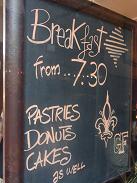 Breakfast
from...7.30
PASTRIES
DONUTS
CAKES
as well
GF